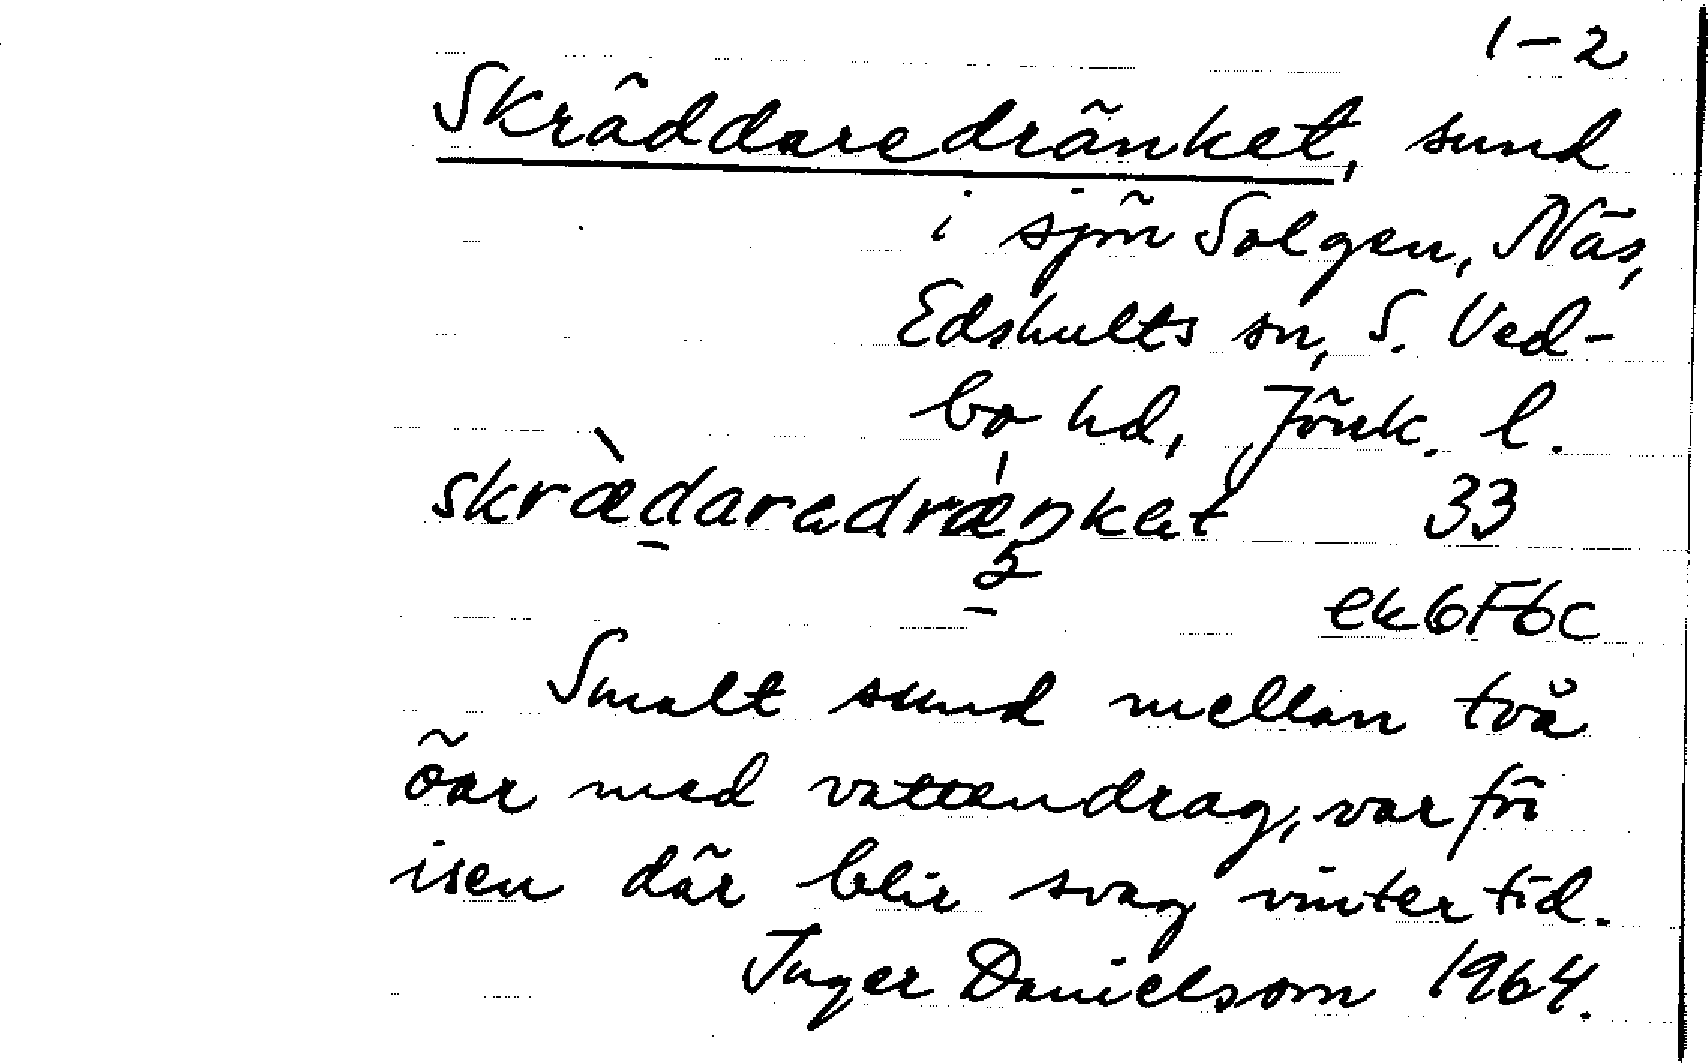 1–2
Skräddaredränket, sund
i sjön Solgen, Näs,
Edshults sn, S. Ved-
bo hd, Jönk. l.
skræ̀daradrǽŋkat 33
5
ek6F6c
Smalt sund mellan två
öar med vattendrag, varför
isen där blir svag vintertid.
Inger Danielsson 1964.